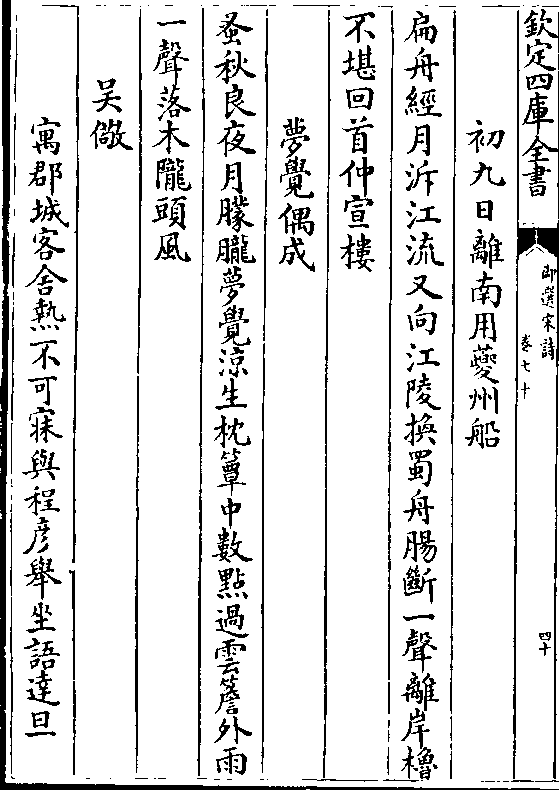 欽定四庫全書
御選宋詩
卷七十
四十
初九日離南用夔州船
扁舟經月泝江流又向江陵換蜀舟腸斷一聲離岸櫓
不堪回首仲宣樓
夢覺偶成
蚤秋良夜月朦朧夢覺涼生枕簟中數點過雲簷外雨
一聲落木隴頭風
吴儆
寓郡城客舍熱不可寐與程彥舉坐語達旦